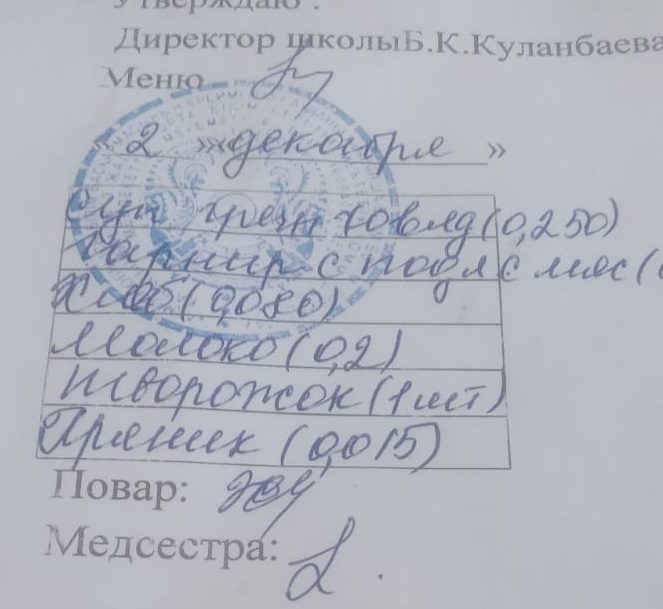 Утверждаю :
Директор школыБ.К.Куланбаева
Меню
« 2 » «декабря »
Суп гречн говяд (0,250)
Гарнир с подл с мяс (
Хлеб (0,080)
Молоко (0,2)
Творожок (1 шт)
Пряник (0,015)
Повар:
Медсестра: